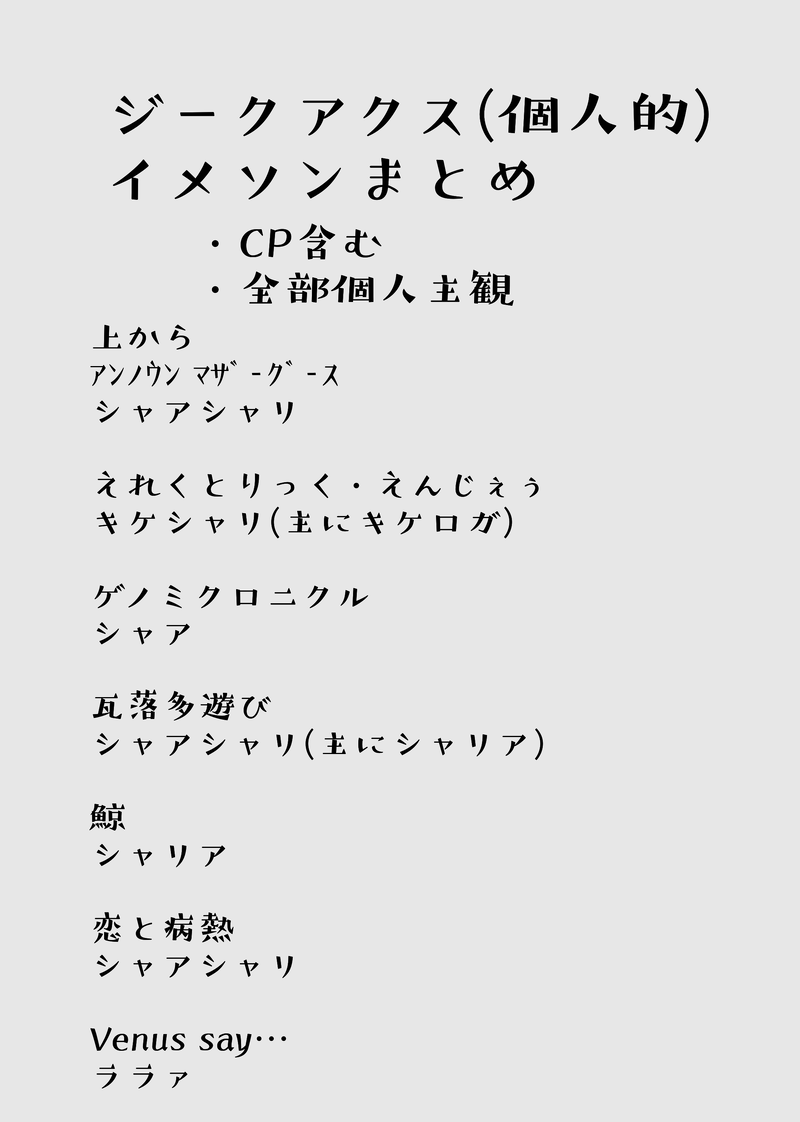 ジークアクス(個人的)
イメソンまとめ
・CP含む
・全部個人主観
上から
ｱﾝﾉｳﾝ ﾏｻﾞｰｸﾞｰｽ
シャアシャリ
えれくとりっく・えんじぇぅ
キケシャリ(主にキケロガ)
ゲノミクロニクル
シャア
瓦落多遊び
シャアシャリ(主にシャリア)
鯨
シャリア
恋と病熱
シャアシャリ
Venus say…
ララァ